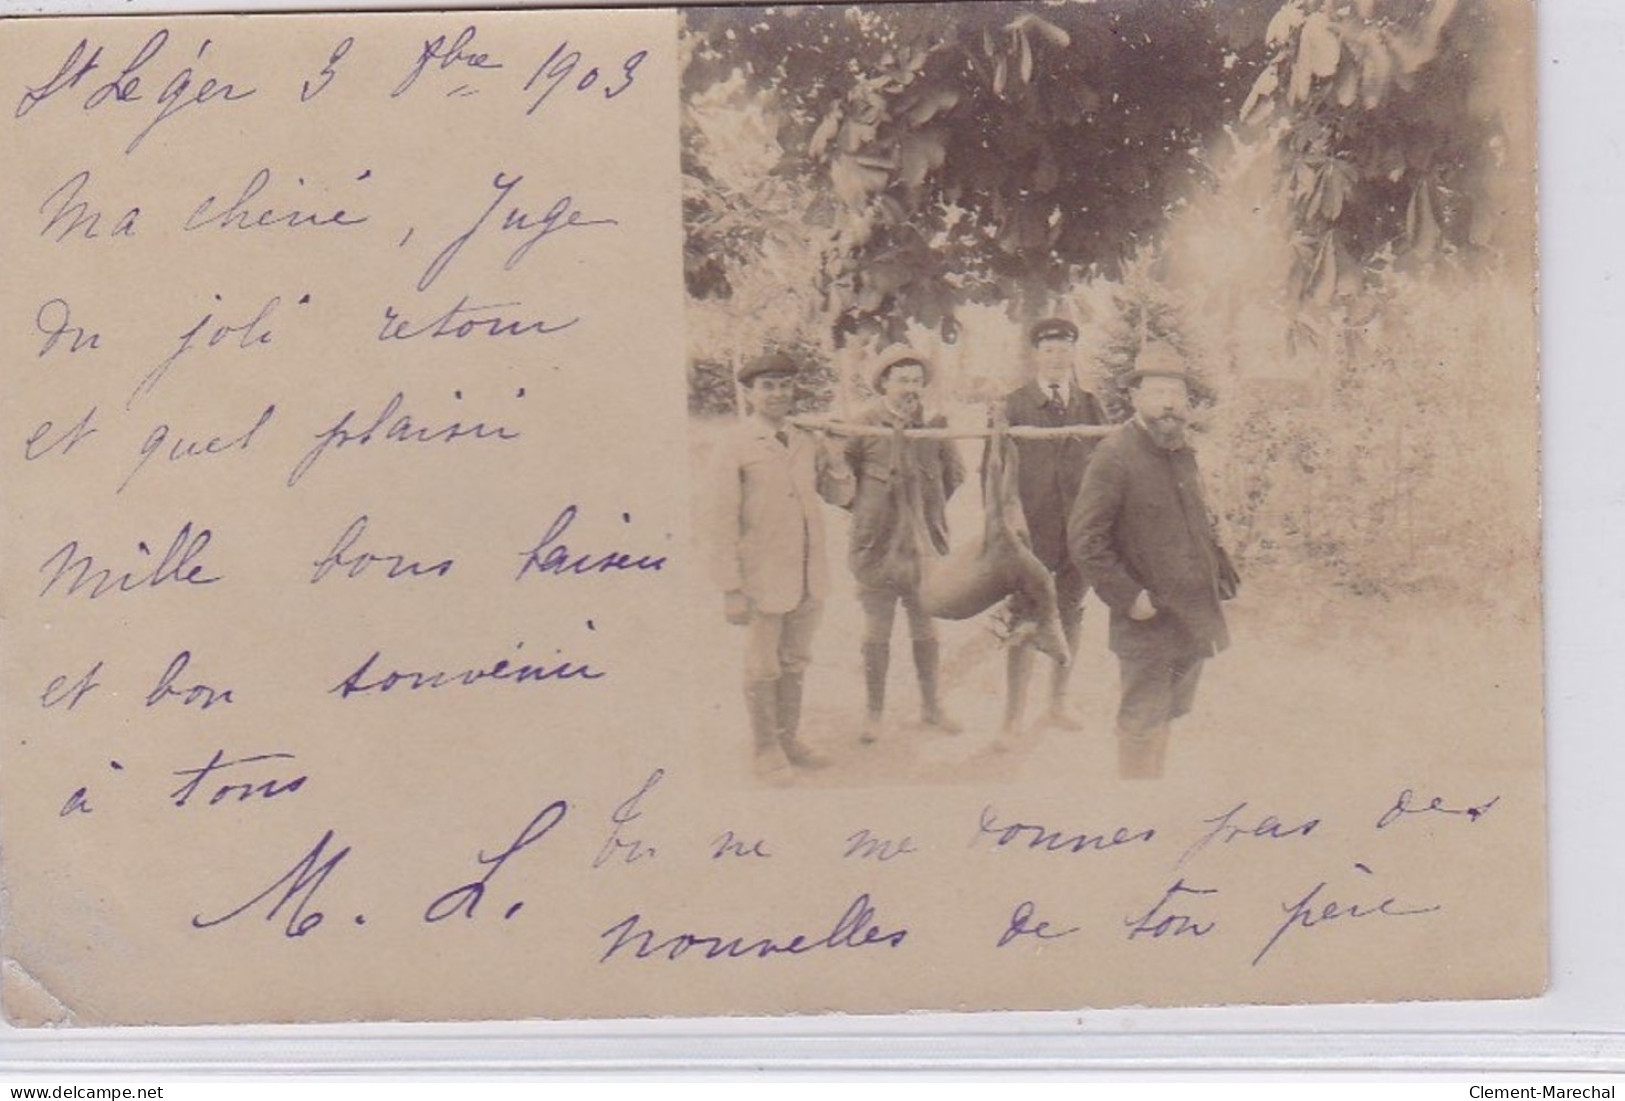 St Léger 3 8bre 1903
Ma chérie, Juge
du joli retour
et quel plaisir
Mille bons baisers
et bon souvenir
à tous
M. L.
Tu ne me donnes pas des
nouvelles de ton père
delcampe.net
Clement-Marechal